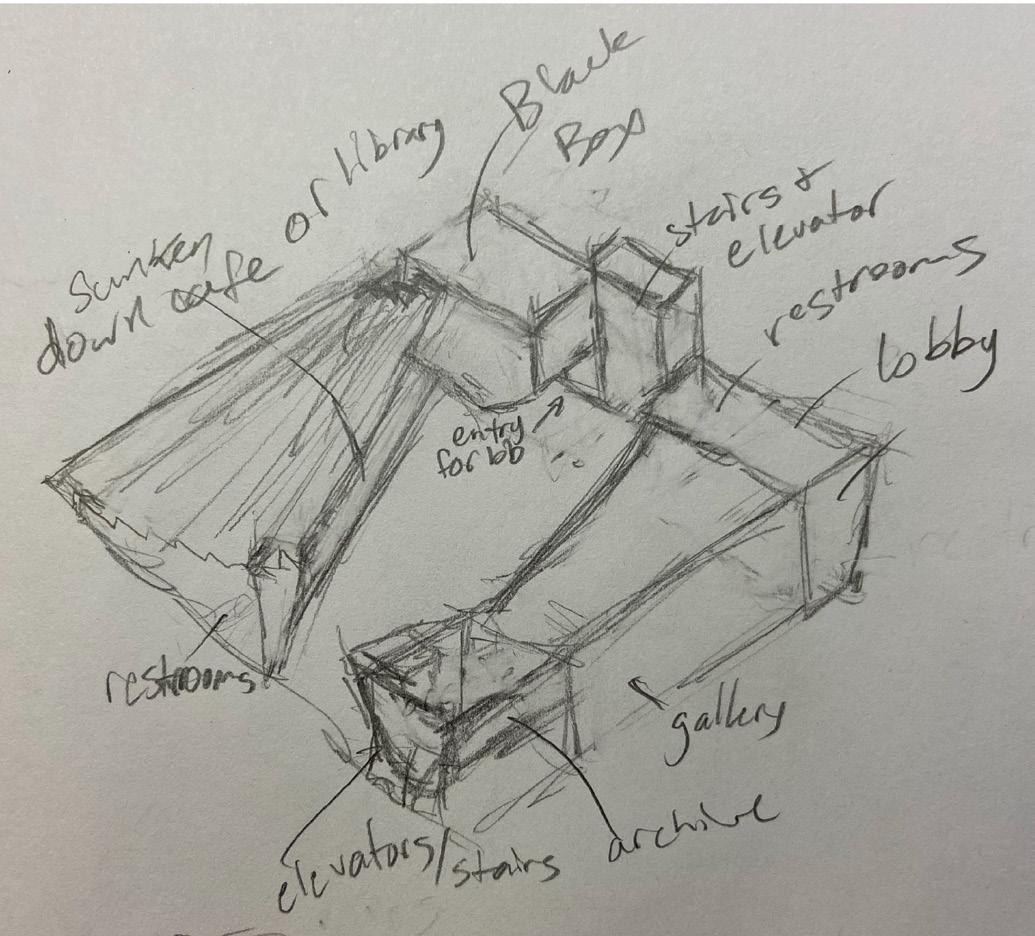 Black
Box
Sunken
down cafe or Library
stairs +
elevator
restrooms
lobby
entry
for bb
restrooms
gallery
archive
elevators/stairs